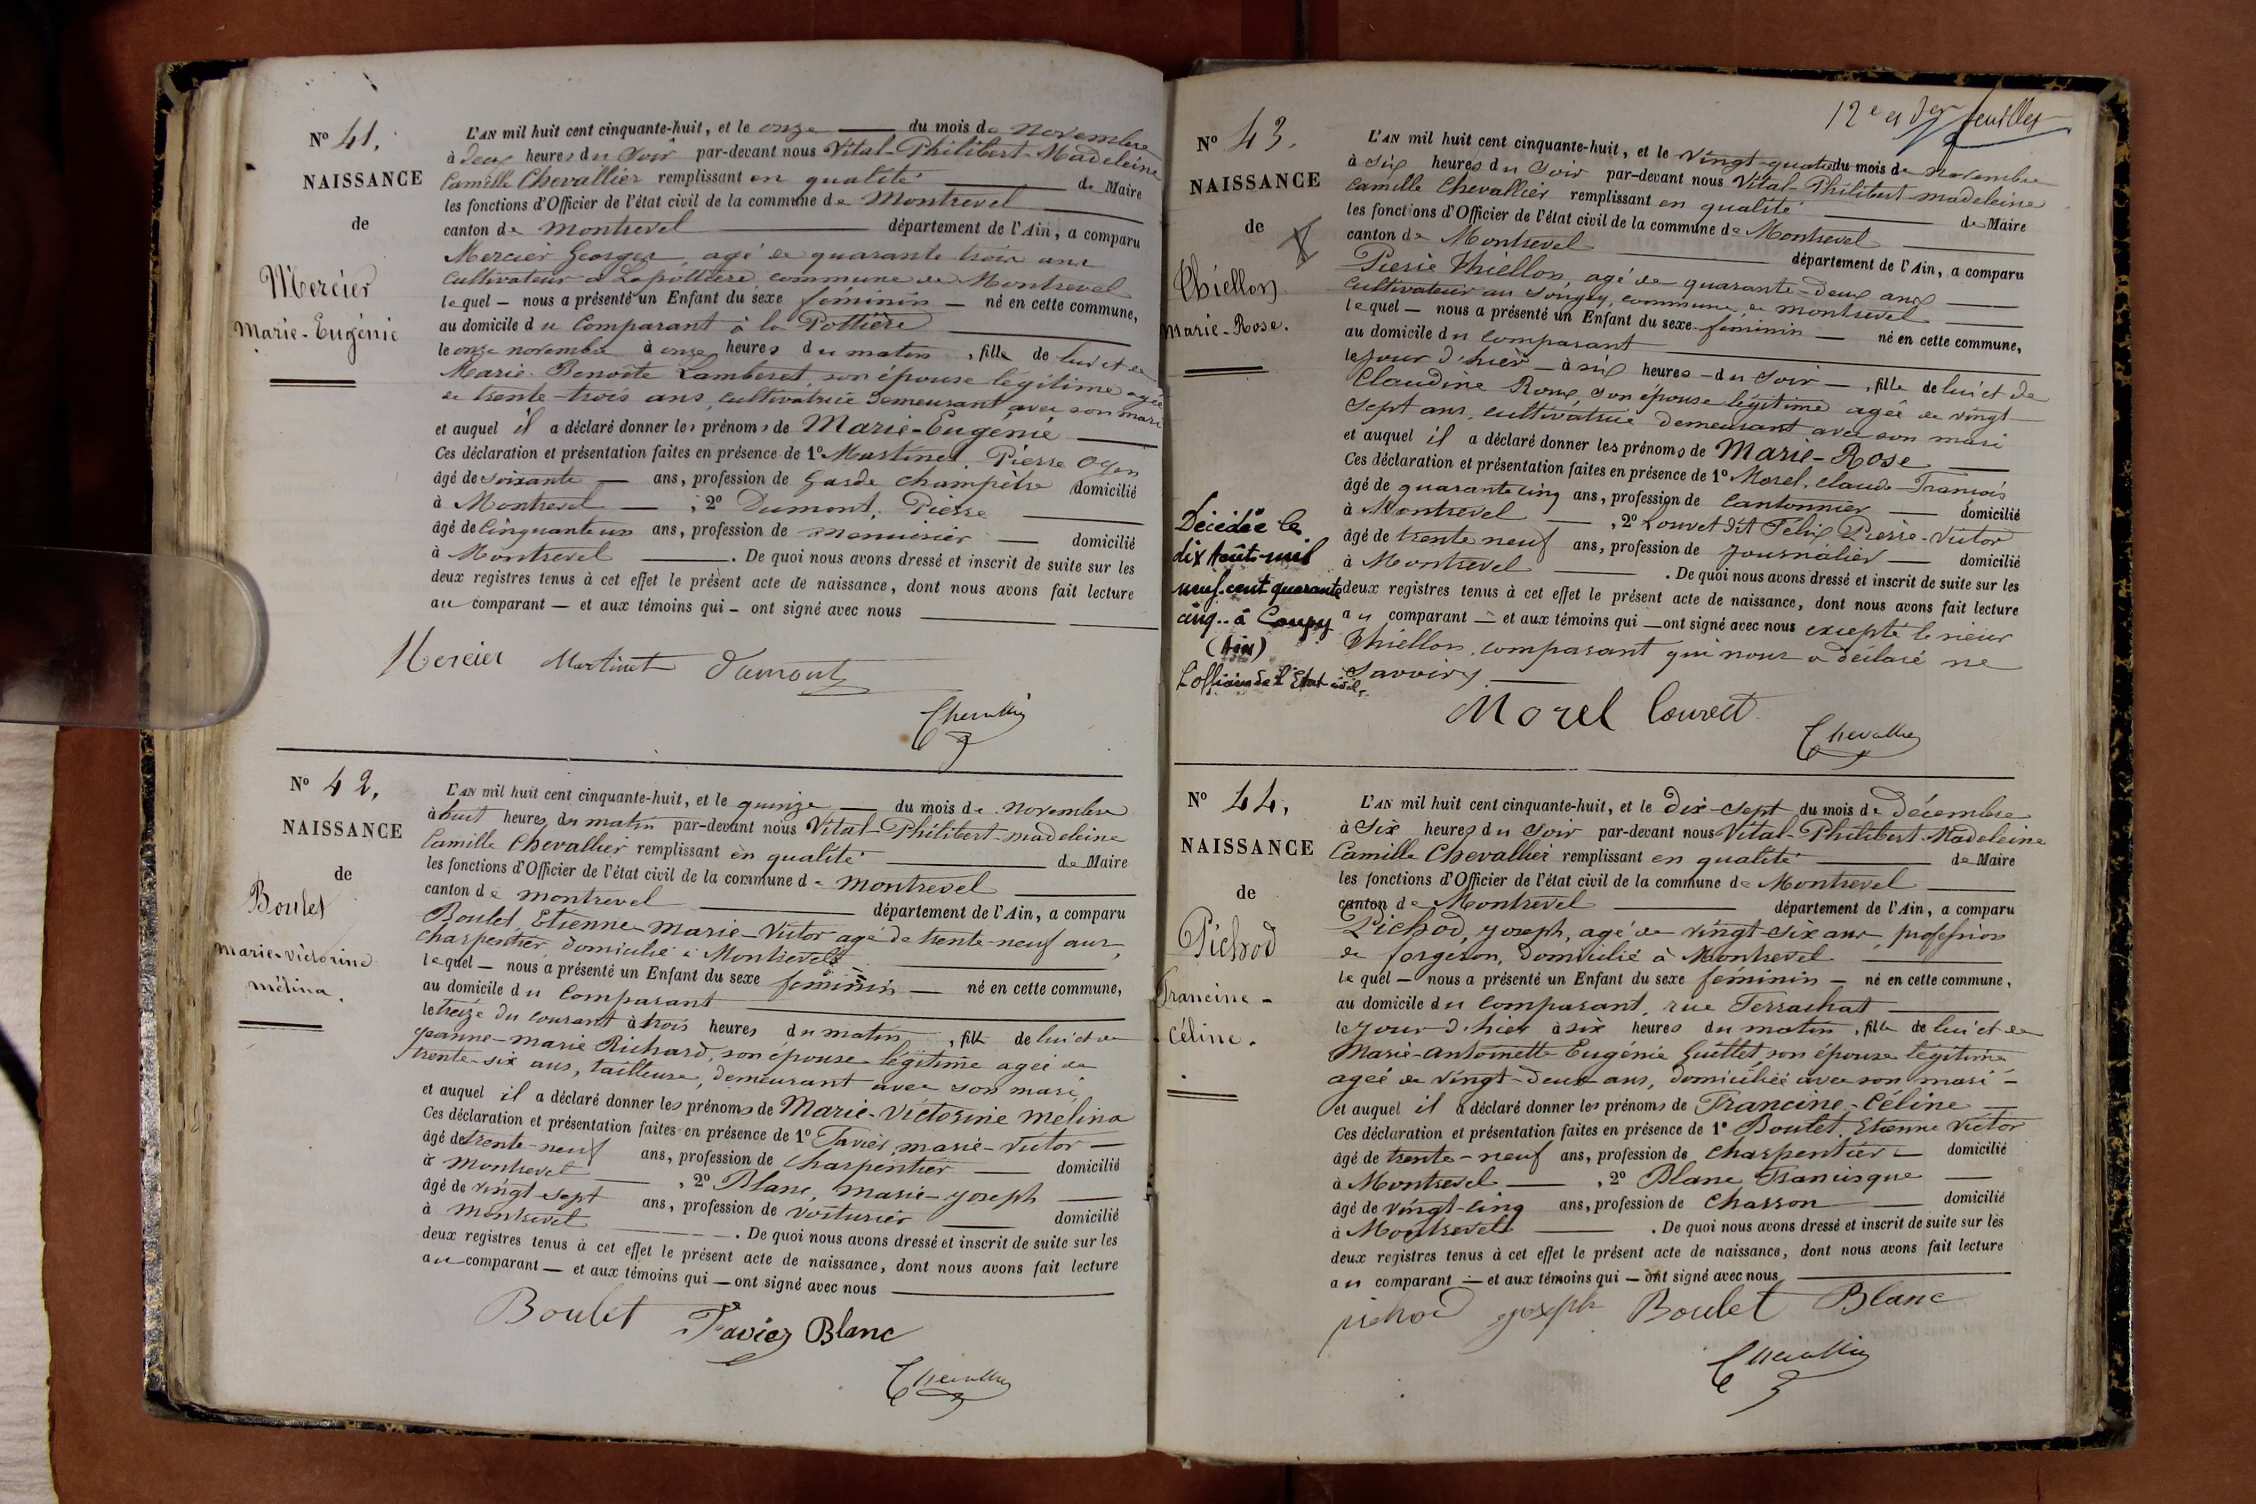 N° 41.
NAISSANCE
de
Mercier
Marie-Eugénie
L'AN mil huit cent cinquante-huit, et le onze du mois de novembre
à deux heures du soir par-devant nous Vital-Philibert-Madeleine
Camille Chevallier remplissant en qualité de Maire
les fonctions d'Officier de l'état civil de la commune de Montrevel
canton de Montrevel département de l'Ain, a comparu
Mercier Georges, agé de quarante trois ans
cultivateur à Lapottière commune de Montrevel
lequel – nous a présenté un Enfant du sexe féminin – né en cette commune,
au domicile du comparant à la Pottière
le onze novembre à onze heures du matin, fille de lui et de
Marie-Benoite Lamberet, son épouse légitime agée
de trente-trois ans, cultivatrice demeurant avec son mari
et auquel il a déclaré donner les prénoms de Marie-Eugénie
Ces déclaration et présentation faites en présence de 1° Martinet, Pierre Oyen
âgé de soixante ans, profession de Garde champêtre domicilié
à Montrevel, 2° Dumont, Pierre
âgé de cinquante un ans, profession de menuisier domicilié
à Montrevel. De quoi nous avons dressé et inscrit de suite sur les
deux registres tenus à cet effet le présent acte de naissance, dont nous avons fait lecture
au comparant — et aux témoins qui – ont signé avec nous
Mercier Martinet Dumont
Chevallier
N° 42.
NAISSANCE
de
Boulet
marie-victorine
mélina.
L'AN mil huit cent cinquante-huit, et le quinze du mois de novembre
à huit heures du matin par-devant nous Vital-Philibert-madeleine
Camille Chevallier remplissant en qualité de Maire
les fonctions d'Officier de l'état civil de la commune de montrevel
canton de montrevel département de l'Ain, a comparu
Boulet, Etienne-Marie-Victor agé de trente-neuf ans,
charpentier, domicilié à Montrevel
lequel – nous a présenté un Enfant du sexe féminin — né en cette commune,
au domicile du comparant
le treize du courant à trois heures du matin, fille de lui et de
jeanne-marie Richard, son épouse légitime agée de
trente-six ans, tailleuse, demeurant avec son mari
et auquel il a déclaré donner les prénoms de Marie-Victorine Melina
Ces déclaration et présentation faites en présence de 1° Favier, marie-Victor —
âgé de trente-neuf ans, profession de charpentier domicilié
à montrevel, 2° Blanc, marie-joseph
âgé de vingt-sept ans, profession de voiturier domicilié
à montrevel. De quoi nous avons dressé et inscrit de suite sur les
deux registres tenus à cet effet le présent acte de naissance, dont nous avons fait lecture
au comparant — et aux témoins qui — ont signé avec nous
Boulet Favier Blanc
Chevallier
12e et der feuillet
N° 43.
NAISSANCE
de
Thiellon
marie-Rose.
Décédée le
dix Août mil
neuf cent quarante
cinq.. à Coupy
(Ain)
L'officier de l'Etat civil.
L'AN mil huit cent cinquante-huit, et le vingt-quatre du mois de novembre
à six heures du soir par-devant nous Vital-Philibert-madeleine
Camille Chevallier remplissant en qualité de Maire
les fonctions d'Officier de l'état civil de la commune de Montrevel
canton de Montrevel département de l'Ain, a comparu
Pierre Thiellon, agé de quarante-deux ans
cultivateur au Sougey, commune de montrevel
lequel – nous a présenté un Enfant du sexe féminin — né en cette commune,
au domicile du comparant
le jour d'hier – à six heures – du soir –, fille de lui et de
Claudine Roux, son épouse légitime agée de vingt
sept ans, cultivatrice demeurant avec son mari
et auquel il a déclaré donner les prénoms de Marie-Rose
Ces déclaration et présentation faites en présence de 1° Morel, Claude-François
âgé de quarante cinq ans, profession de cantonnier domicilié
à Montrevel, 2° Louvet dit Félix Pierre-Victor
âgé de trente neuf ans, profession de journalier domicilié
à Montrevel. De quoi nous avons dressé et inscrit de suite sur les
deux registres tenus à cet effet le présent acte de naissance, dont nous avons fait lecture
au comparant — et aux témoins qui — ont signé avec nous excepté le sieur
Thiellon, comparant qui nous a déclaré ne
savoir
Morel Louvet
Chevallier
N° 44.
NAISSANCE
de
Pichod
Francine-
Céline.
L'AN mil huit cent cinquante-huit, et le Dix-sept du mois de décembre
à six heures du soir par-devant nous Vital-Philibert-Madeleine
Camille Chevallier remplissant en qualité de Maire
les fonctions d'Officier de l'état civil de la commune de Montrevel
canton de Montrevel département de l'Ain, a comparu
Pichod, joseph, agé de vingt-six ans, profession
de forgeron, domicilié à Montrevel
lequel – nous a présenté un Enfant du sexe féminin — né en cette commune,
au domicile du comparant, rue Terrachat
le jour d'hier à six heures du matin, fille de lui et de
Marie-Antoinette Eugénie Guillet, son épouse légitime
agée de vingt-deux ans, domiciliée avec son mari –
et auquel il a déclaré donner les prénoms de Francine-Céline
Ces déclaration et présentation faites en présence de 1° Boulet, Etienne Victor
âgé de trente-neuf ans, profession de charpentier domicilié
à Montrevel, 2° Blanc Francisque
âgé de vingt-cinq ans, profession de charron domicilié
à Montrevel. De quoi nous avons dressé et inscrit de suite sur les
deux registres tenus à cet effet le présent acte de naissance, dont nous avons fait lecture
au comparant — et aux témoins qui — ont signé avec nous
pichod joseph Boulet Blanc
Chevallier